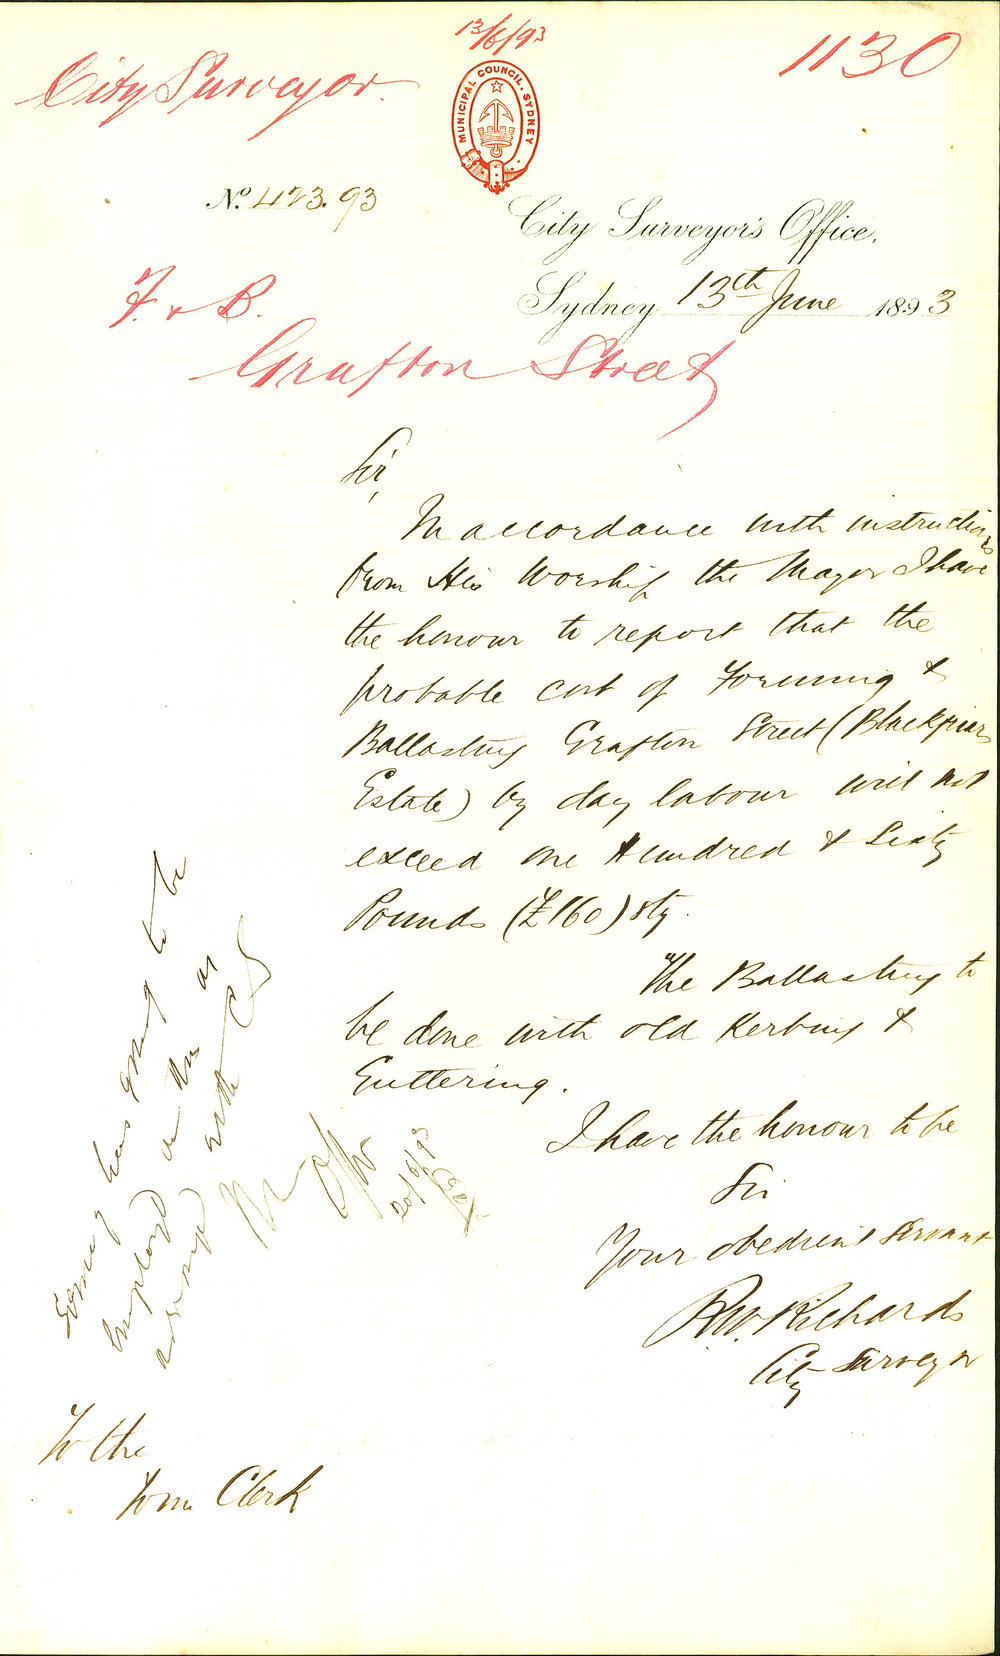 13/6/93
1130
City Surveyor.
MUNICIPAL COUNCIL. SYDNEY
No. 423.93
City Surveyor's Office,
Sydney 13th June 1893
F. & B.
Grafton Street
Sir,
In accordance with instructions
from His Worship the Mayor I have
the honour to report that the
probable cost of Forming &
Ballasting Grafton Street (Blackfriars
Estate) by day labour will not
exceed one Hundred & Sixty
Pounds (£160) stg.
The Ballasting to
be done with old Kerbing &
Guttering.
I have the honour to be
Sir
Your obedient Servant
R.W. Richards
City Surveyor
going to be
employed on this as
with CS
20/6/93
To the
Town Clerk